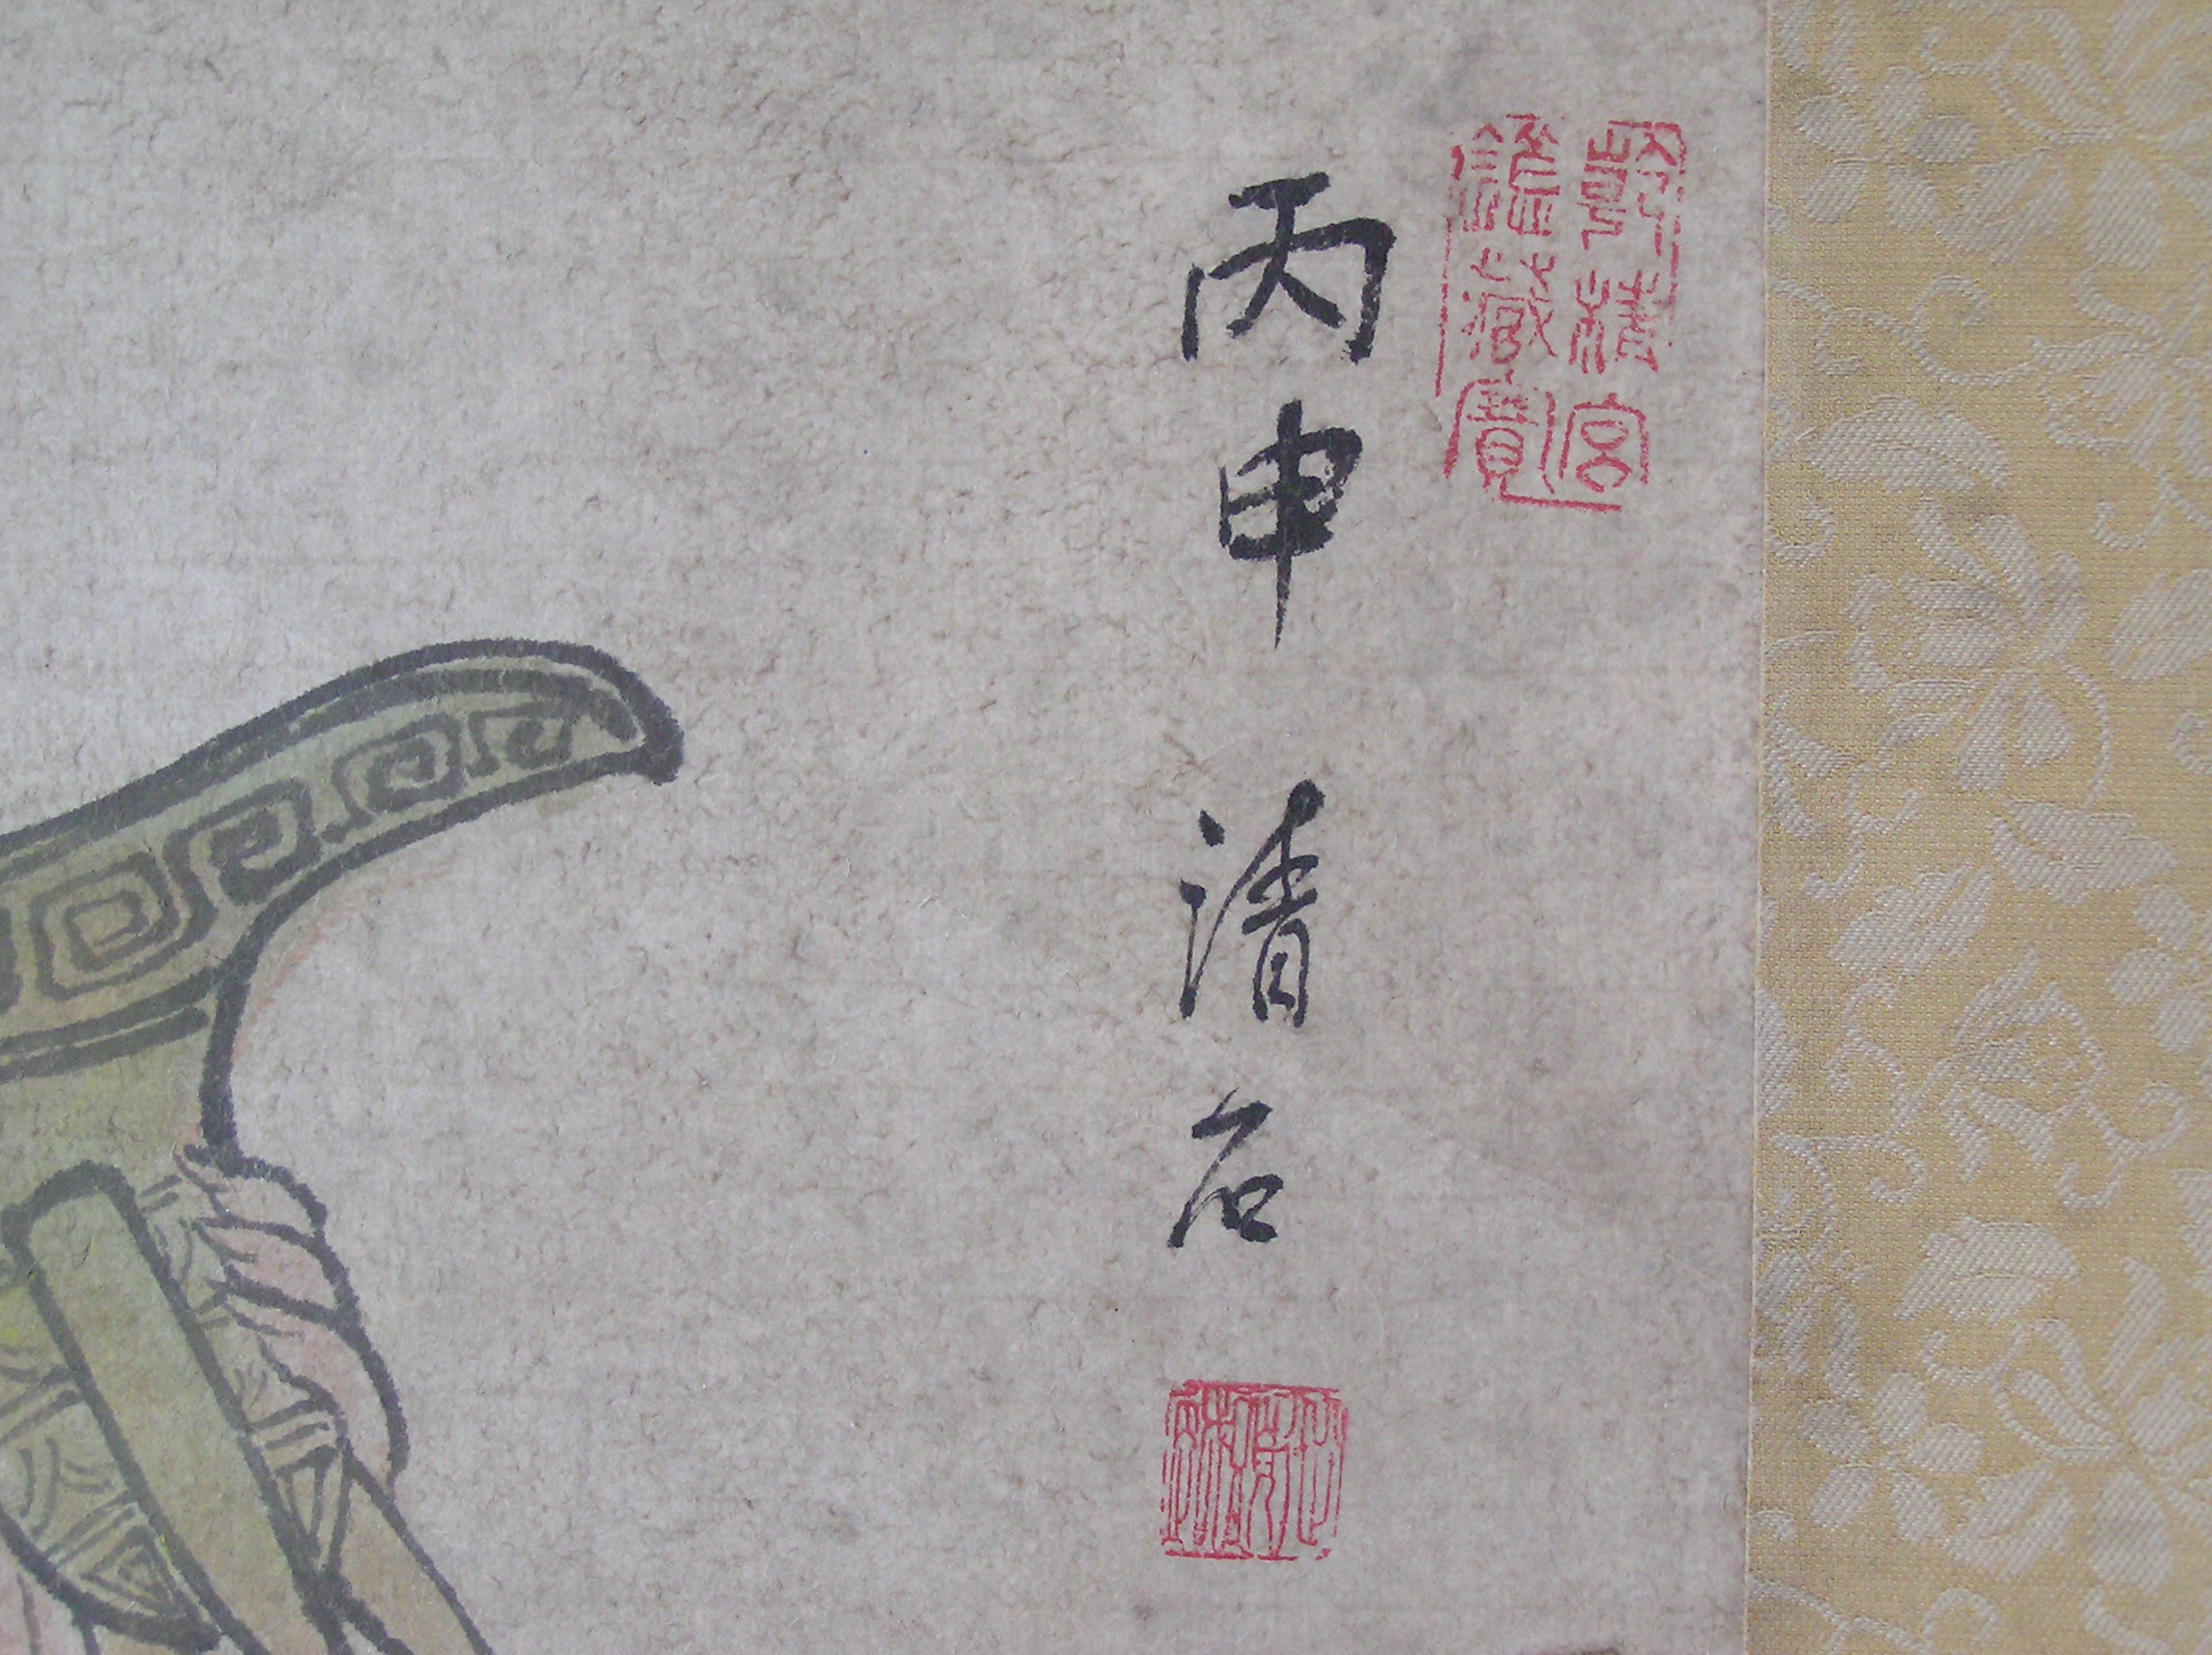 乾清宮
鑑藏寶
丙申 清石